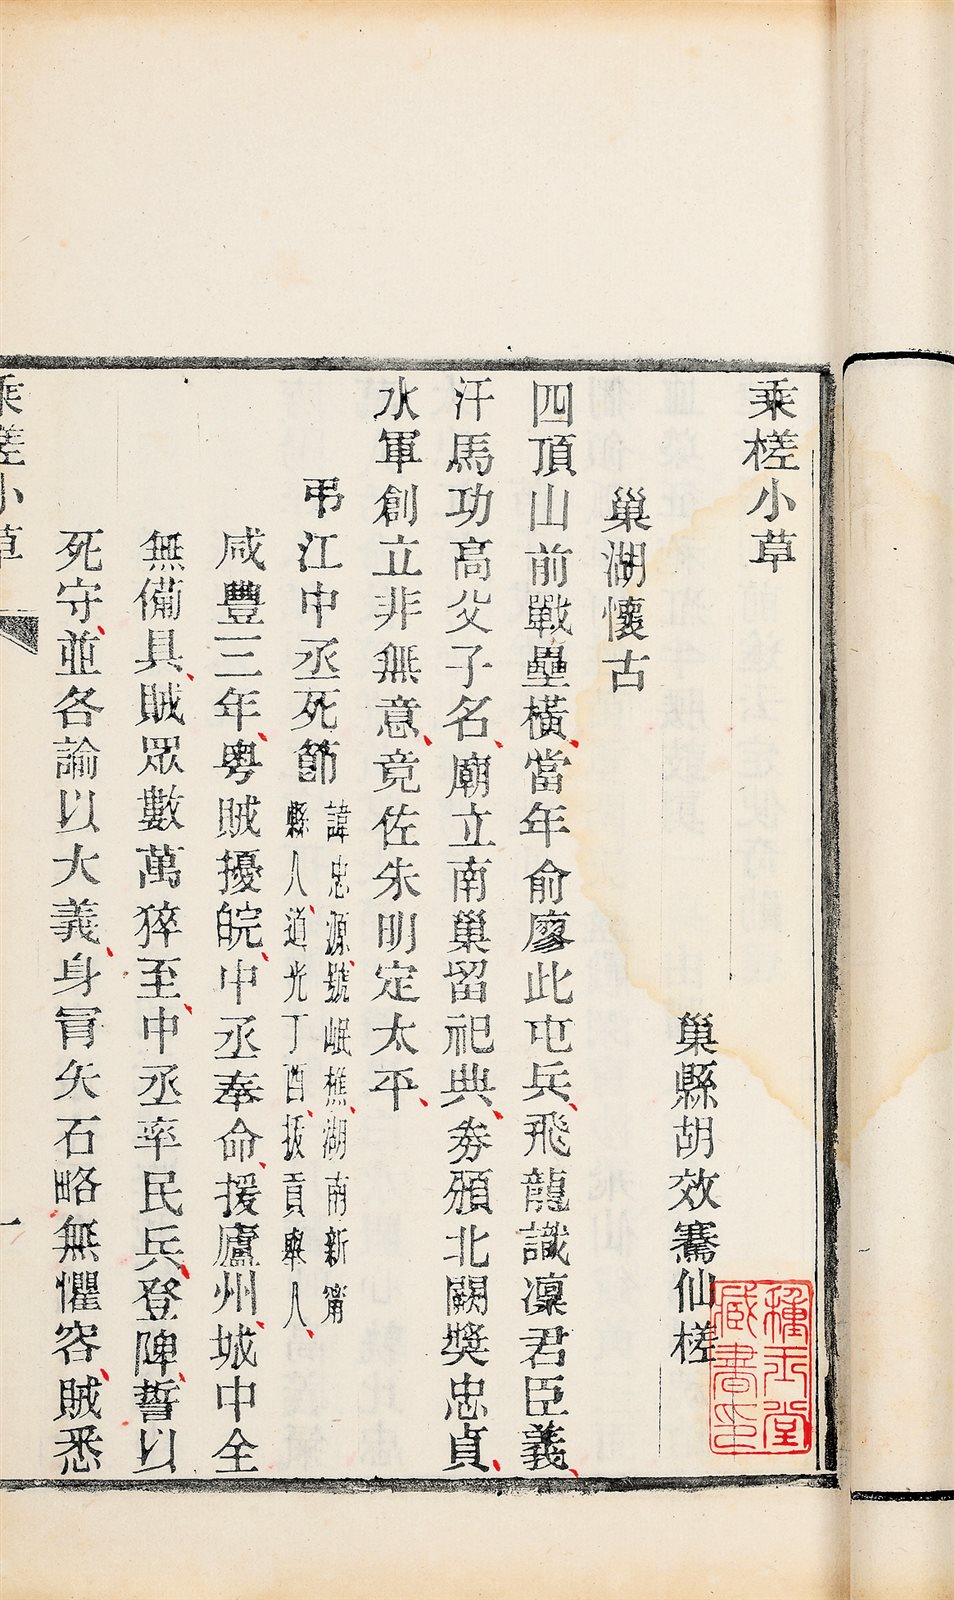 乘槎小草
巢縣胡效騫仙槎
巢湖懷古
四頂山前戰壘橫當年俞廖此屯兵飛龍識凜君臣義
汗馬功高父子名廟立南巢留祀典券頒北闕獎忠貞
水軍創立非無意竟佐朱明定太平
弔江中丞死節
諱忠源號岷樵湖南新甯
縣人道光丁酉拔貢舉人
咸豐三年粵賊擾皖中丞奉命援廬州城中全
無備具賊眾數萬猝至中丞率民兵登陴誓以
死守並各諭以大義身冒矢石略無懼容賊悉
乘槎小草
一
種玉堂
藏書印